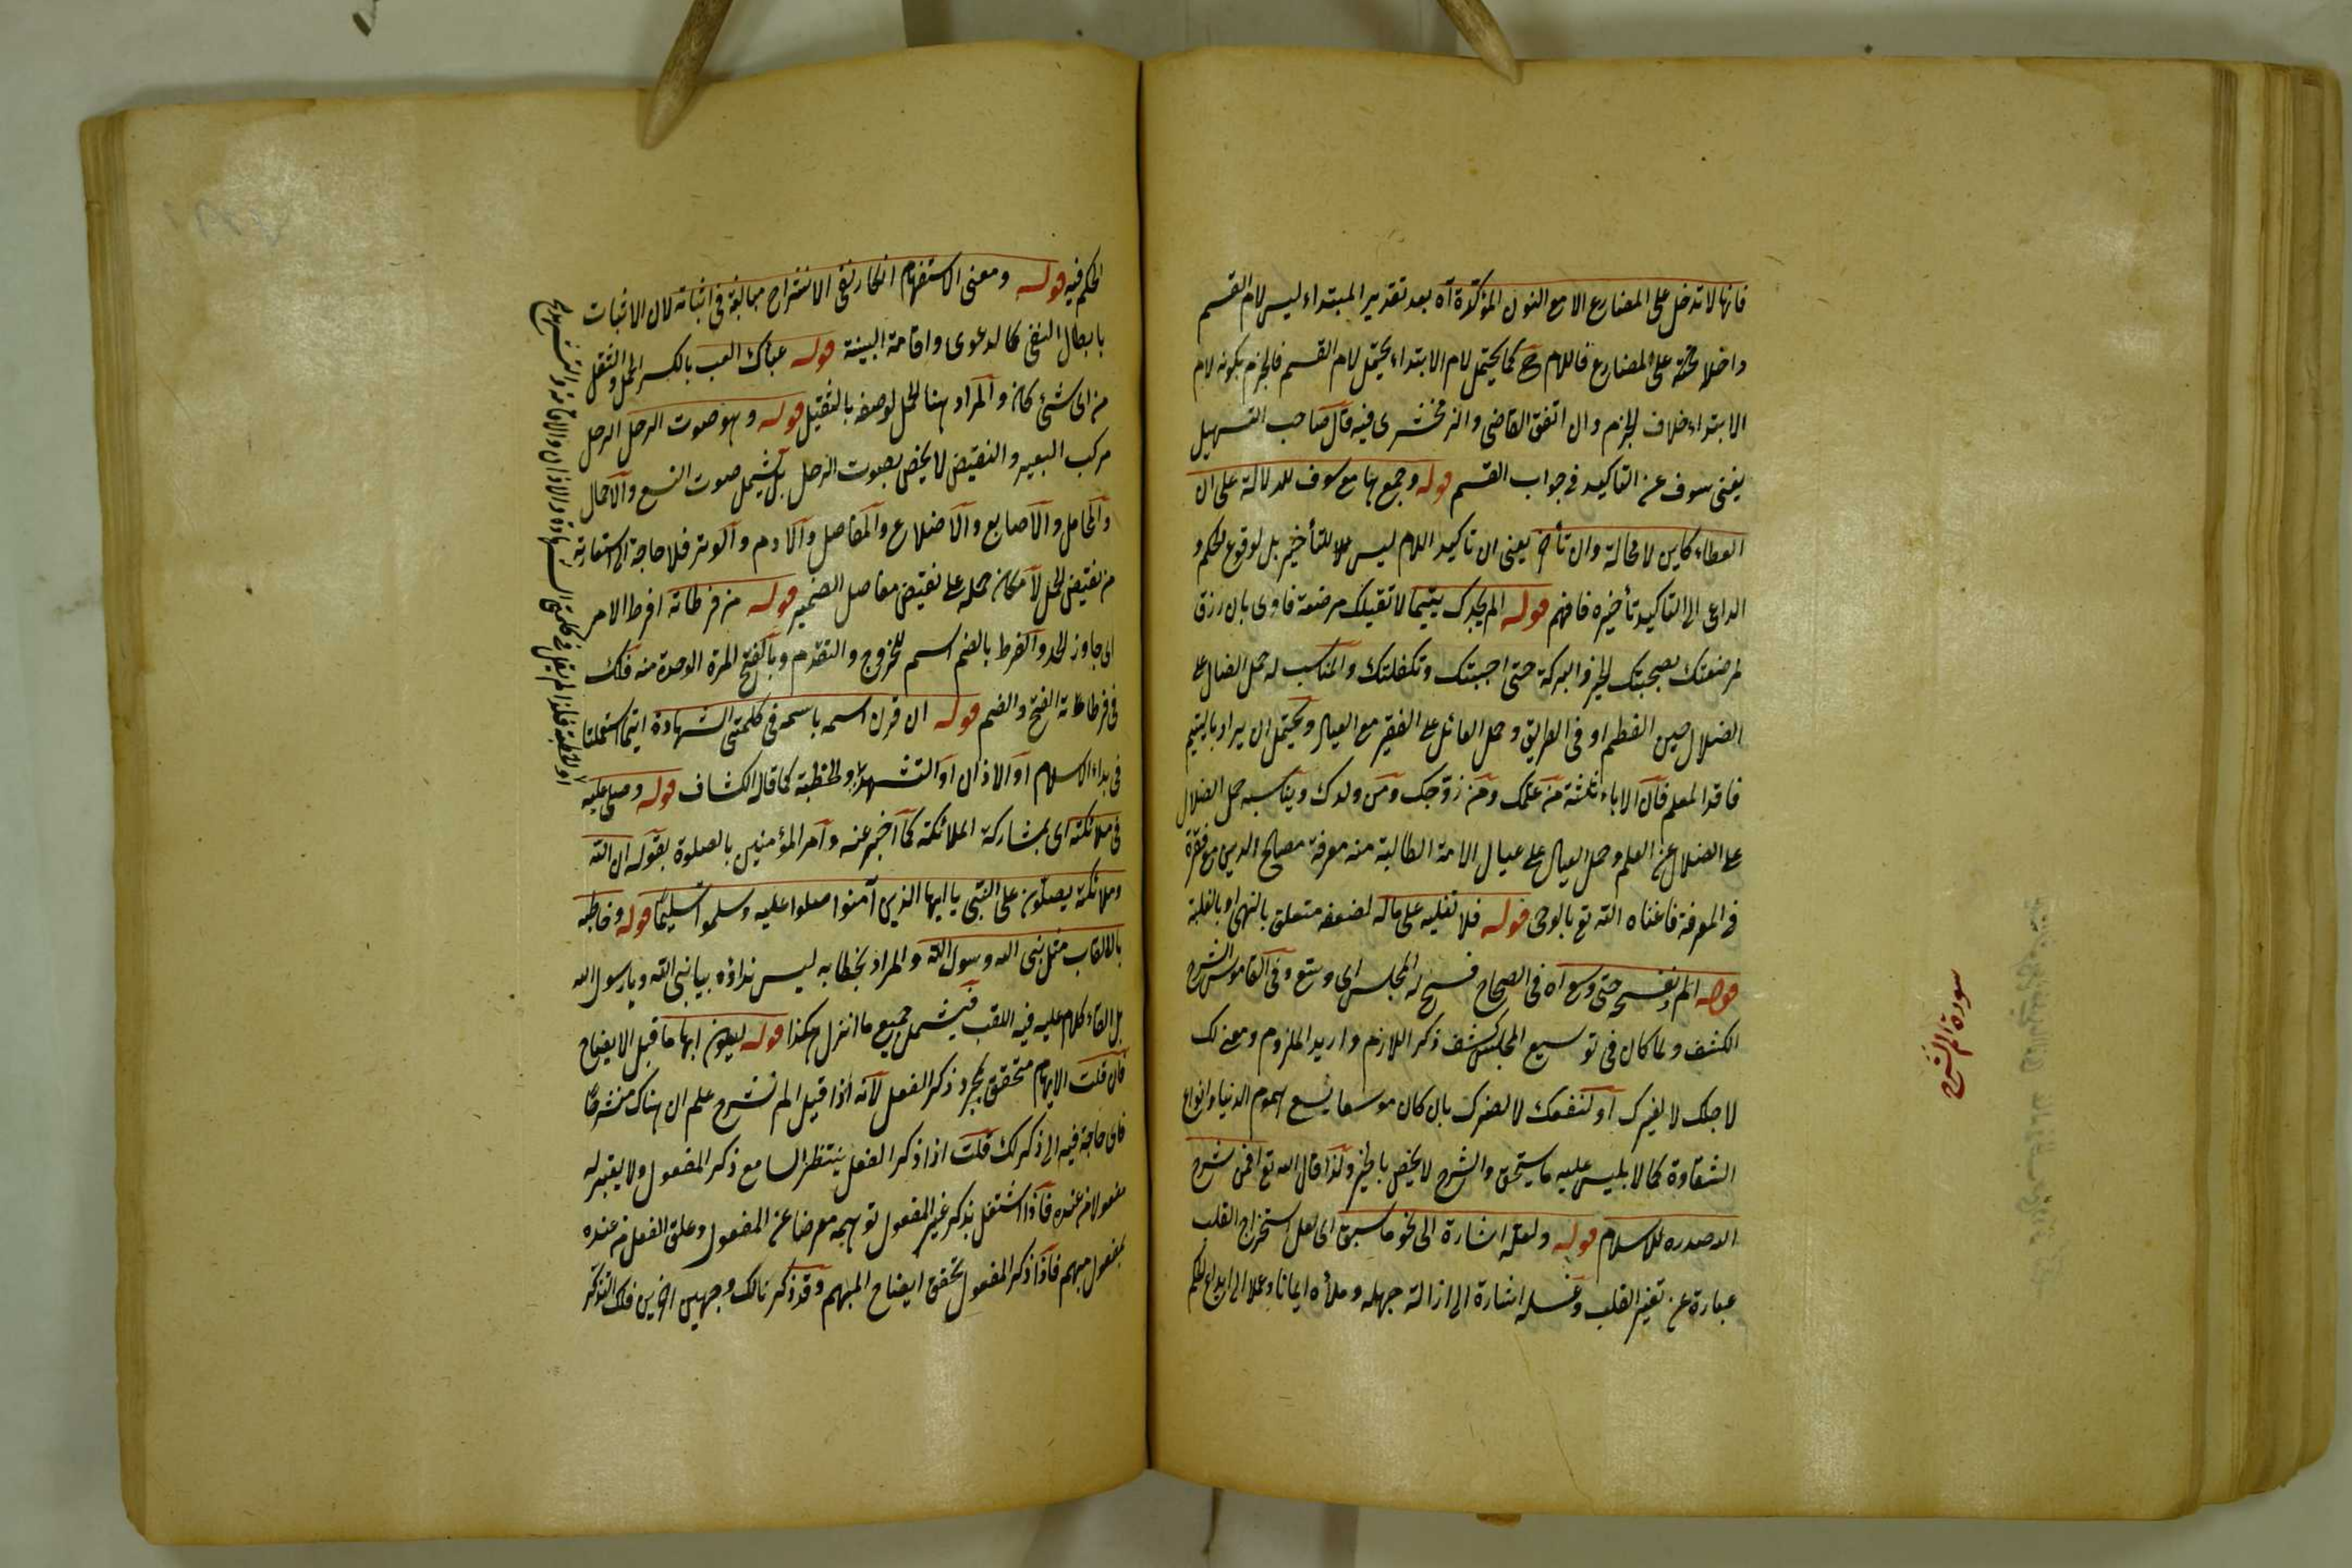 فانها لا تدخل على المضارع الا مع النون المؤكدة آه بعد تقدير المبتداء ليس لام القسم
داخلا حقه على المضارع فاللام ح كما يحتمل لام الابتداء يحتمل لام القسم فالجزم بكونه لام
الابتداء خلاف الجزم وان اتفق القاضى والزمخشرى فيه قال صاحب التسهيل
يغنى سوف عن التاكيد فى جواب القسم قوله وجمعها مع سوف للدلالة على ان
العطاء كاين لا محالة وان تأخر يعنى ان تاكيد اللام ليس للتأخير بل لوقوع الحكم و
الداعى الى التاكيد تأخيره فافهم قوله الم يجدك يتيما لا تقبلك مرضعة فاوى بان رزق
لمرضعتك بصحبتك الخير والبركة حتى احبتك وتكفلتك والمناسب له حمل الضال على
الضلال حين الفطم او فى الطريق وحمل العائل على الفقير مع العيال ويحتمل ان يراد باليتيم
فاقد المعلم فان الاباء ثلثة من علمك ومن زوجك ومن ولدك ويناسبه حمل الضلال
على الضلال عن العلم وحمل العيال على عيال الامة الطالبة منه معرفة مصالح الدين مع فقره
فى المعرفة فاغناه الله تع بالوحى قوله فلا تغلبه على ماله لضعفه متعلق بالنهى او بالغلبة
قوله الم نفسح حتى وسع آه فى الصحاح فسح له المجلس اى وسع وفى القاموس الشرح
الكشف ولما كان فى توسيع المجلس كشف ذكر اللازم واريد الملزوم ومعنى لك
لاجلك لا لغيرك او لنفعك لا لضرك بان كان موسعا يسع هموم الدنيا وانواع
الشقاوة كما لابليس عليه ما يستحق والشرح لا يخص بالخير ولذا قال الله تع افمن شرح
الله صدره للاسلام قوله ولعله اشارة الى نحو ما سبق اى لعل استخراج القلب
عبارة عن تغير القلب وغسله اشارة الى ازالة جهله وملأه ايمانا وعلما الى ايداع الحكم
سورة الم نشرح
الحكم فيه قوله ومعنى الاستفهام انكار نفى الانشراح مبالغة فى اثباته لان الاثبات
بابطال النفى كالدعوى واقامة البينة قوله عبأك العب بالكسر الحمل والثقل
من اى شئ كان والمراد هنا الحمل لوصفه بالثقيل قوله وهو صوت الرحل الرحل
مركب البعير والنقيض لا يخص بصوت الرحل بل يشمل صوت النسع والاحمال
والمحامل والاصابع والاضلاع والمفاصل والادم والوتر فلا حاجة الى استعارته
من نقيض الحمل لامكان حمله على نقيض مفاصل الضمير قوله من فرطاته افرط الامر
اى جاوز الحد والفرط بالضم اسم للخروج والتقدم وبالفتح المرة الوحدة منه فلك
فى فرطاته الفتح والضم قوله ان قرن اسمه باسمه فى كلمتى الشهادة ايتما استعملتا
فى بداء الاسلام او الاذان او التشهد والخطبة كما قال الكشاف قوله وصلى عليه
فى ملائكته اى بمشاركة الملائكة كما اخبر عنه وامر المؤمنين بالصلوة بقوله ان الله
وملائكته يصلون على النبى يا ايها الذين آمنوا صلوا عليه وسلموا تسليما قوله وخاطبه
بالالقاب مثل نبى الله ورسول الله والمراد بخطابه ليس نداؤه بيا نبى الله ويا رسول الله
بل القاء كلام عليه فيه اللقب فيشمل جميع ما انزل هكذا قوله ليكون ابهاما قبل الايضاح
فان قلت الابهام متحقق بمجرد ذكر الفعل لانه اذا قيل الم نشرح علم ان هناك منشرحا
فاى حاجة فيه الى ذكر لك قلت اذا ذكر الفعل ينتظر السامع ذكر المفعول ولا يعتبر له
مفعولا من عنده فاذا اشتغل بذكر غير المفعول توهمه معرضا عن المفعول وعلق الفعل من عنده
بمفعول مبهم فاذا ذكر المفعول تحقق ايضاح المبهم وقد ذكر نالك وجهين اخرين فلك التذكر